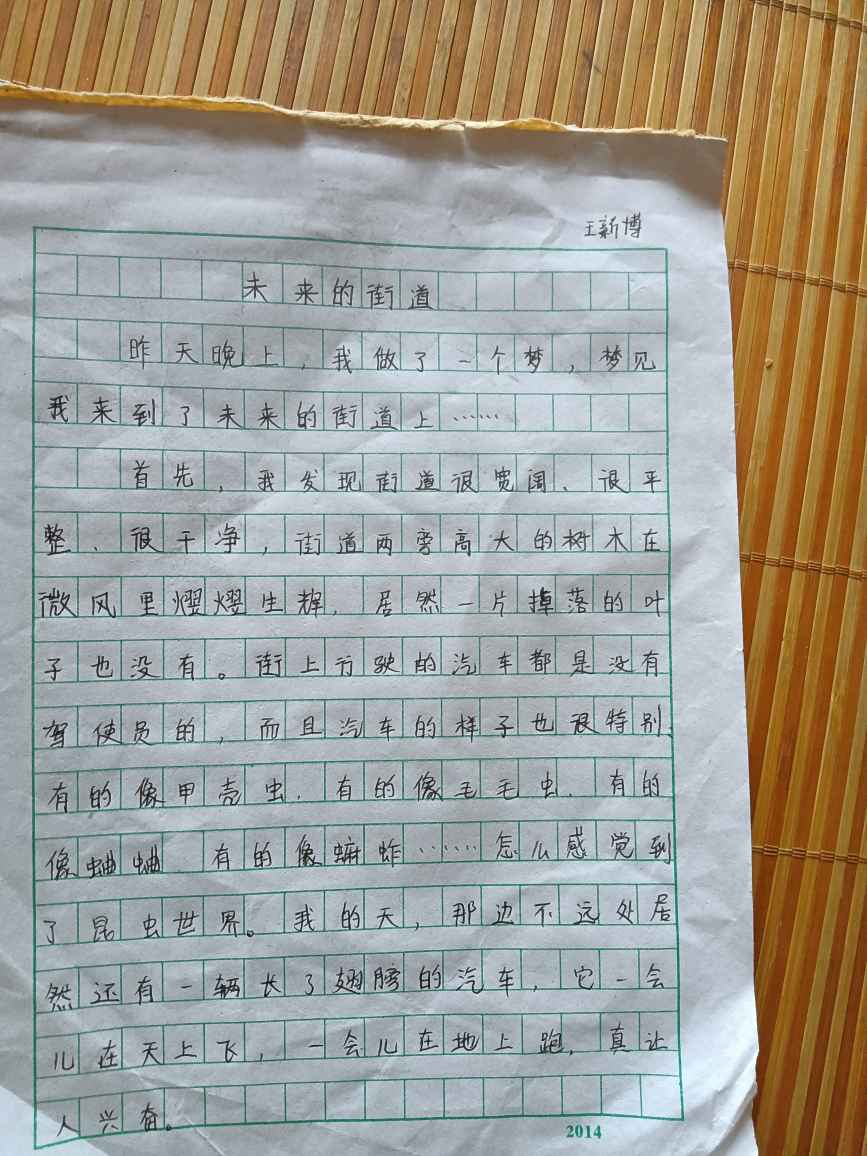 王新博
未来的街道
昨天晚上，我做了一个梦，梦见
我来到了未来的街道上……
首先，我发现街道很宽阔、很平
整、很干净，街道两旁高大的树木在
微风里熠熠生辉，居然一片掉落的叶
子也没有。街上行驶的汽车都是没有
驾使员的，而且汽车的样子也很特别，
有的像甲壳虫，有的像毛毛虫，有的
像蛐蛐，有的像蚂蚱……怎么感觉到
了昆虫世界。我的天，那边不远处居
然还有一辆长了翅膀的汽车，它一会
儿在天上飞，一会儿在地上跑，真让
人兴奋。
2014